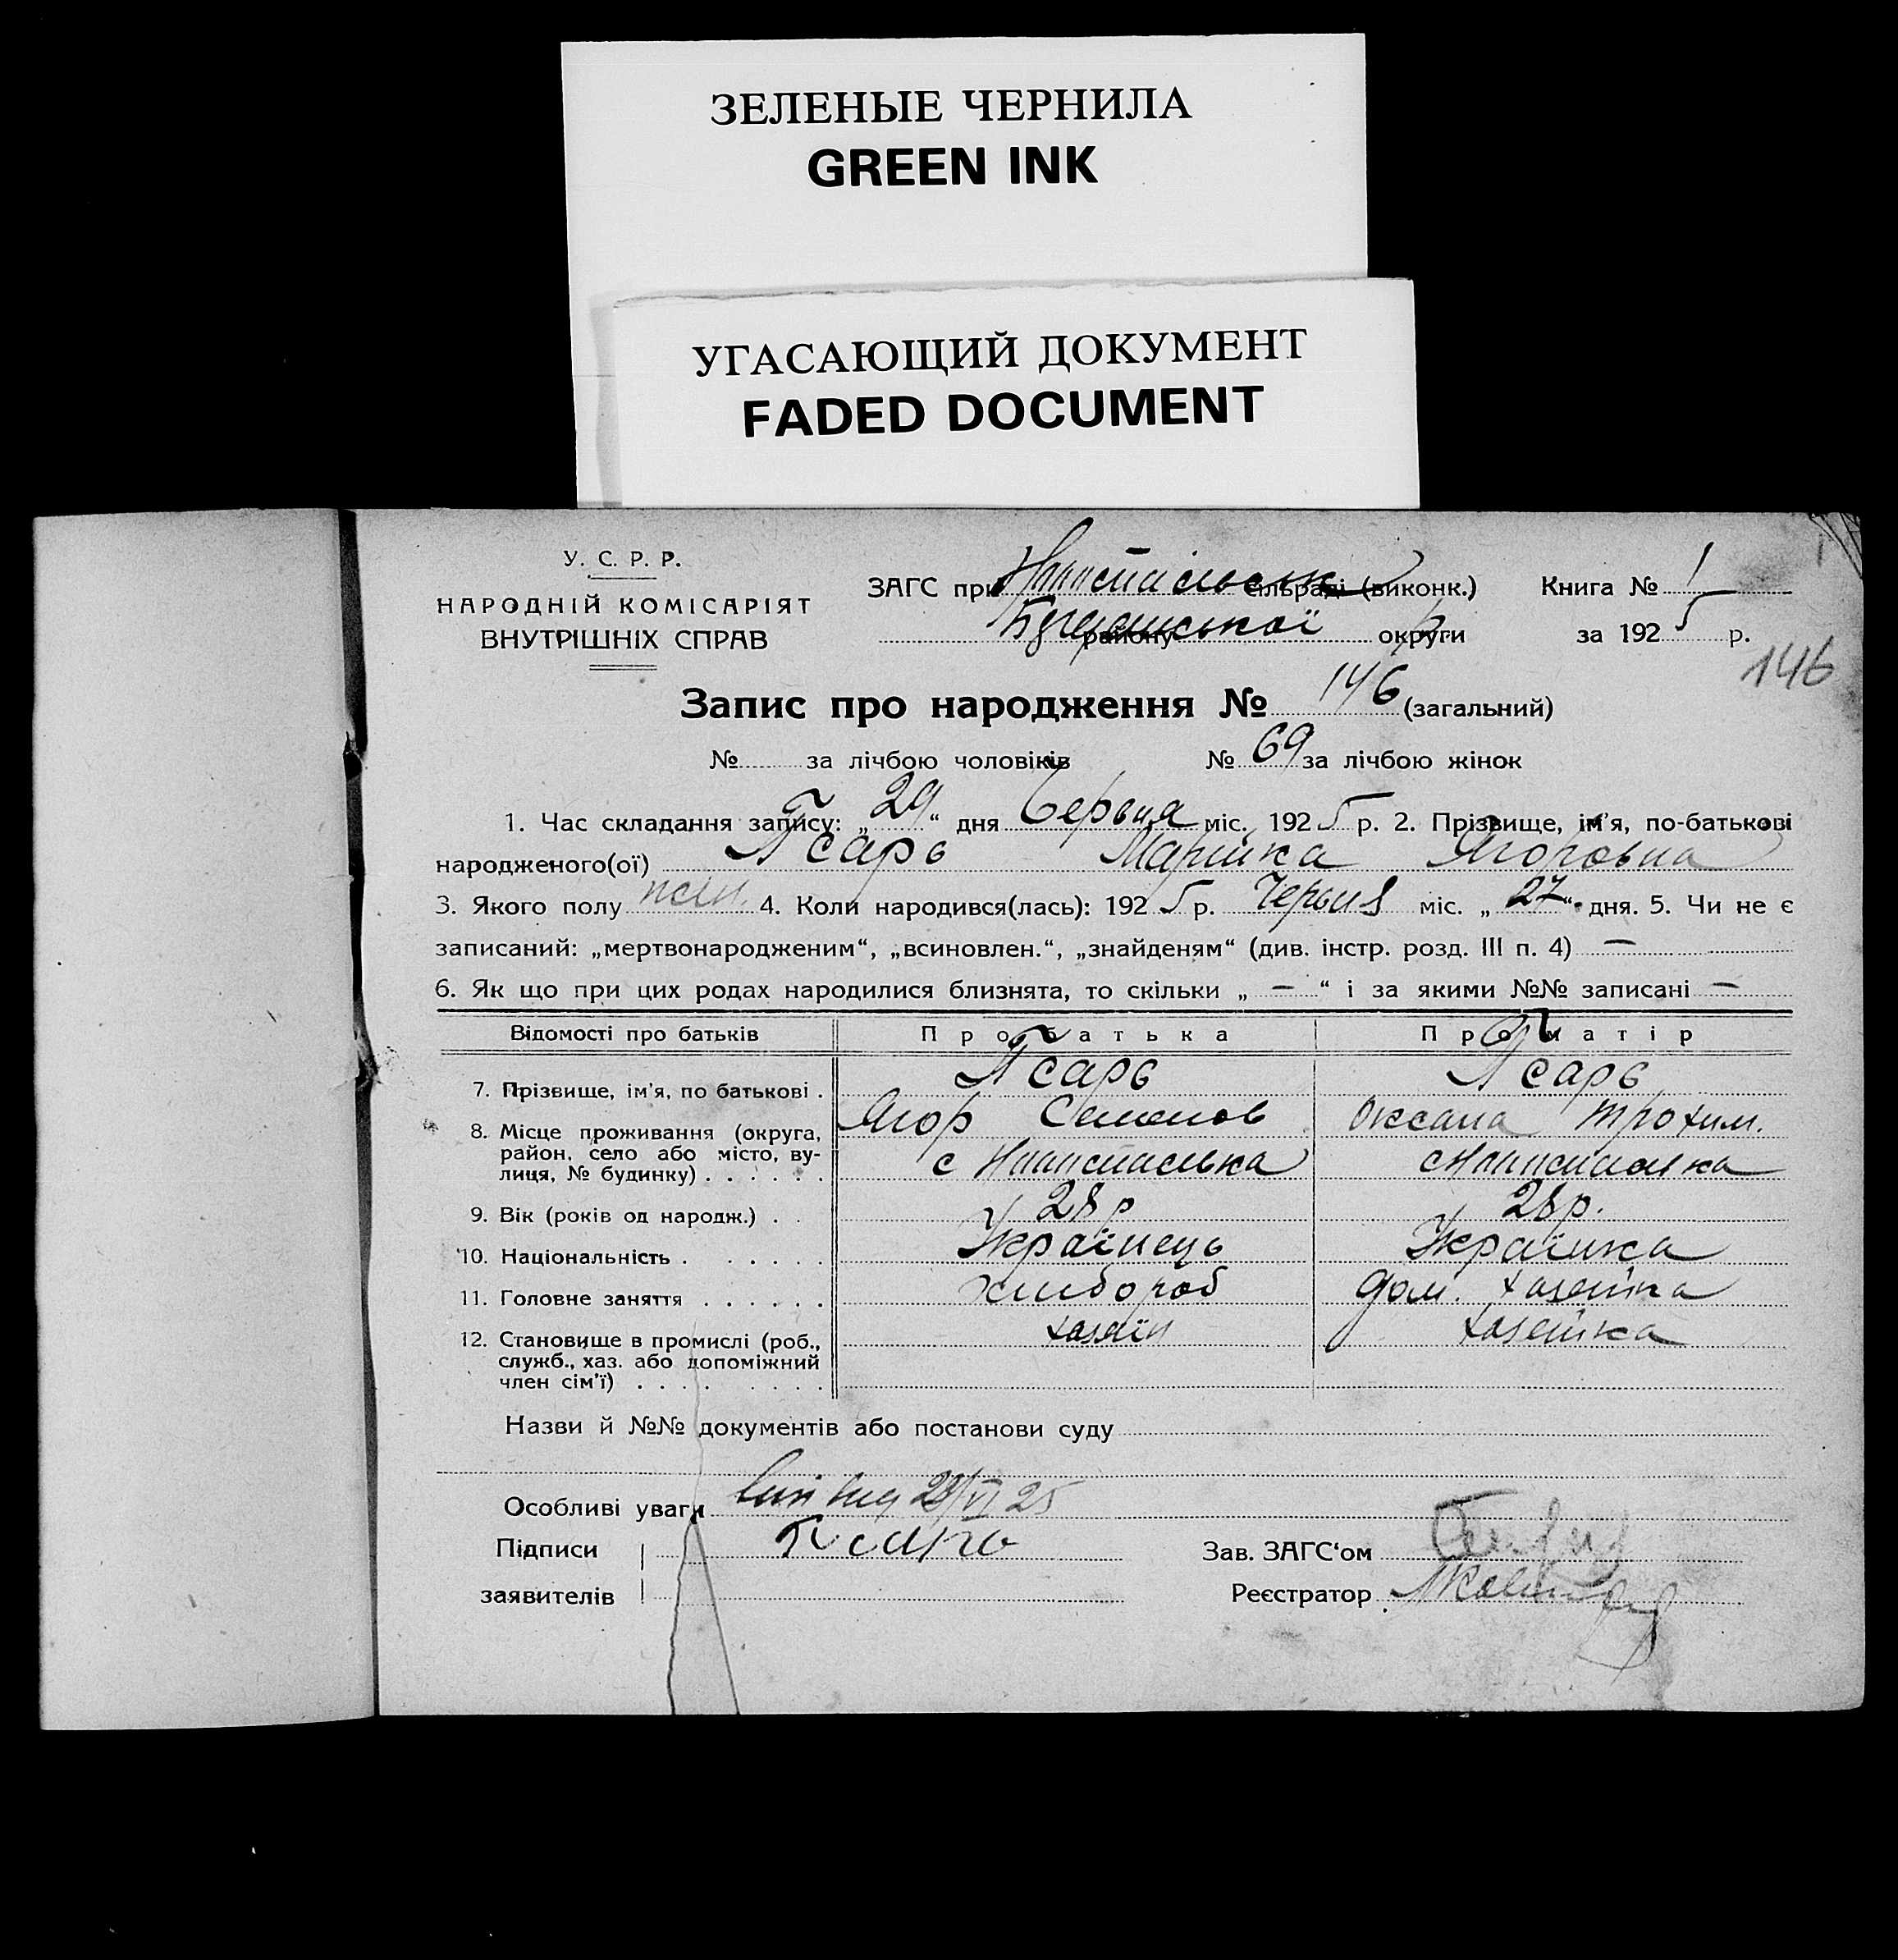 ЗЕЛЕНЫЕ ЧЕРНИЛА
GREEN INK
УГАСАЮЩИЙ ДОКУМЕНТ
FADED DOCUMENT
У. С. Р. Р.
НАРОДНІЙ КОМІСАРІЯТ
ВНУТРІШНІХ СПРАВ
ЗАГС при сільраді (виконк.)
району округи
Книга № 1
за 1925 р.
146
Запис про народження № 146 (загальний)
№ за лічбою чоловіків № 69 за лічбою жінок
1. Час складання запису: „29“ дня Червня міс. 1925 р. 2. Прізвище, ім'я, по-батькові
народженого(ої) Псарь Марійка Ягоровна
3. Якого полу жін. 4. Коли народився(лась): 1925 р. Червня міс. „27“ дня. 5. Чи не є
записаний: „мертвонародженим“, „всиновлен.“, „знайденям“ (див. інстр. розд. III п. 4) —
6. Як що при цих родах народилися близнята, то скільки „ — “ і за якими №№ записані —
Відомості про батьків Про батька Про матір
7. Прізвище, ім'я, по батькові . Псарь Псарь
Ягор Семенов Оксана Трохим.
8. Місце проживання (округа, район, село або місто, вулиця, № будинку) . . . . . . с с
9. Вік (років од народж.) . . 28 р 28 р.
10. Національність . . . . . . Українець Українка
11. Головне заняття . . . . . . хлибороб дом. хазейка
12. Становище в промислі (роб., служб., хаз. або допоміжний член сім'ї) . . . . . . . . хазяїн хазейка
Назви й №№ документів або постанови суду
Особливі уваги VI 25
Підписи заявителів Псарь
Зав. ЗАГС‘ом
Реєстратор